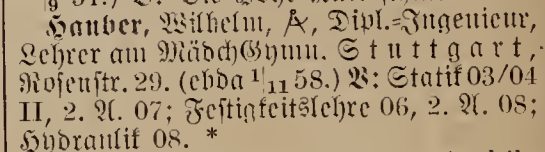 Hauber, Wilhelm, Dipl.=Ingenieur,
Lehrer am MädchGymn. Stuttgart,
Rosenstr. 29. (ebda 1/11 58.) V: Statik 03/04
II, 2. A. 07; Festigkeitslehre 06, 2. A. 08;
Hydraulik 08. *